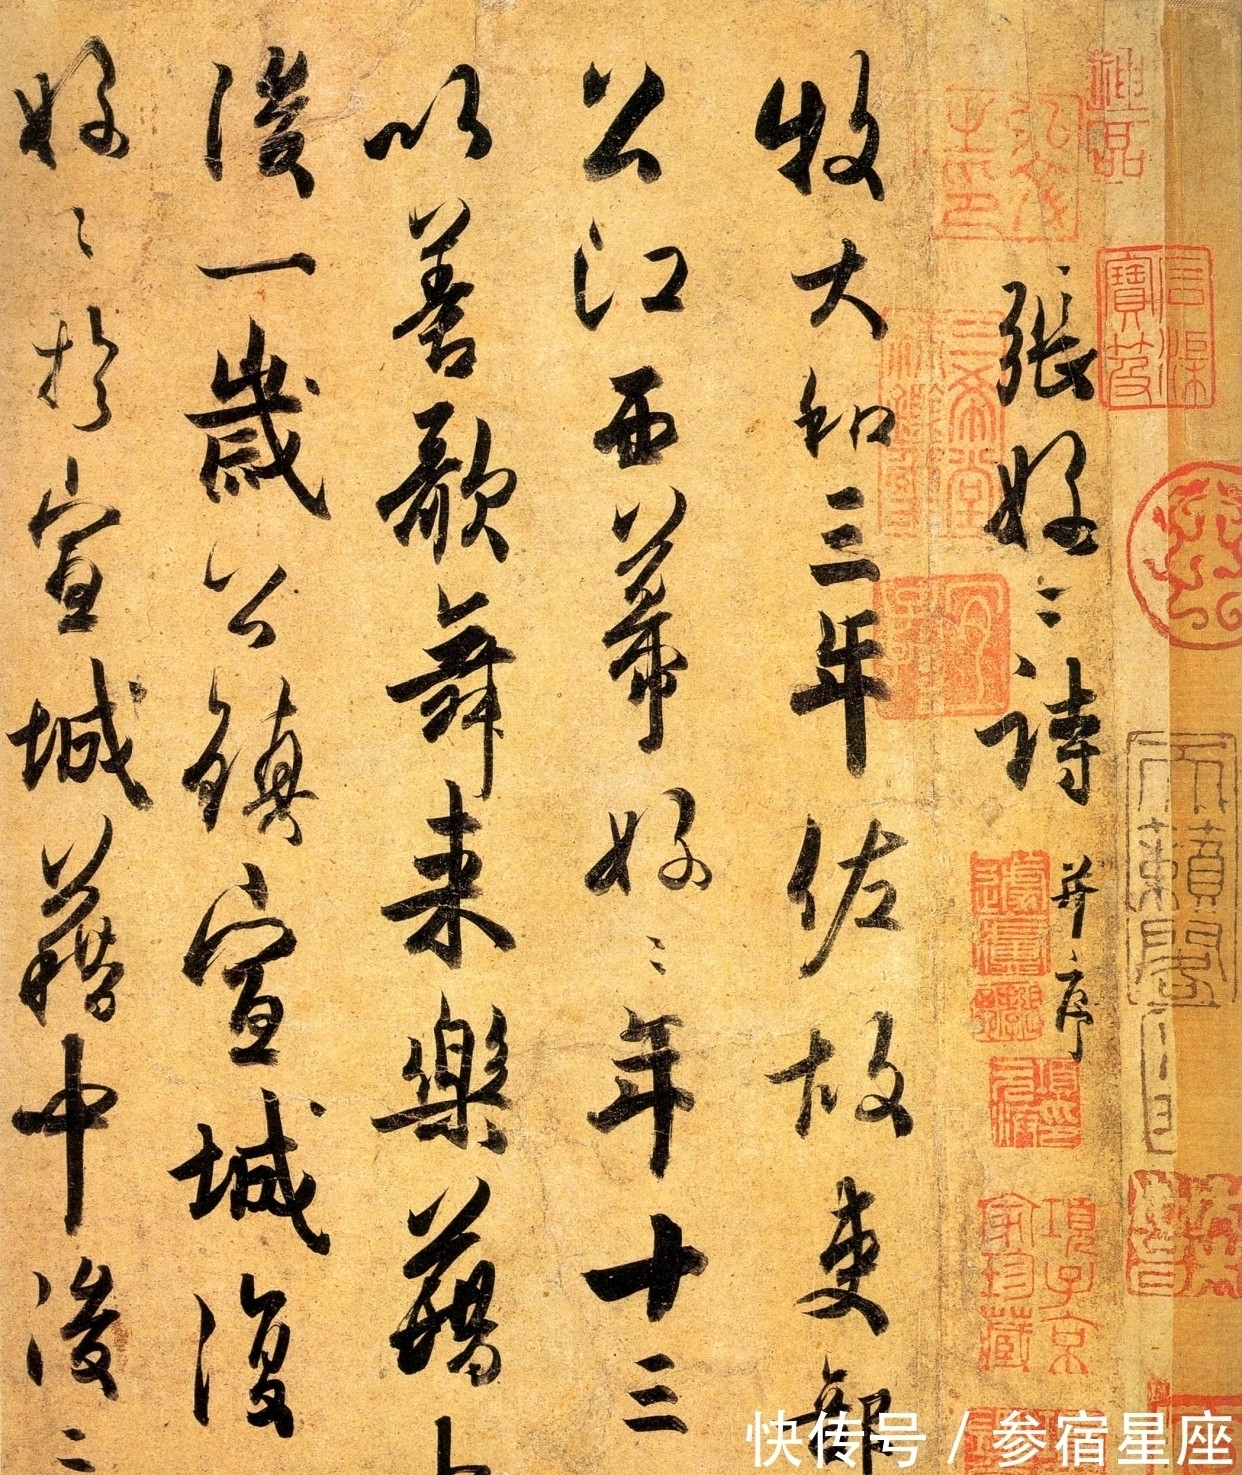 張好〻詩 并序
牧大和三年佐故吏部
公江西幕好〻年十三
以善歌舞来樂籍中
後一歲公鎮宣城復
好〻於宣城籍中後二
項子京家珍藏
快传号 / 参宿星座